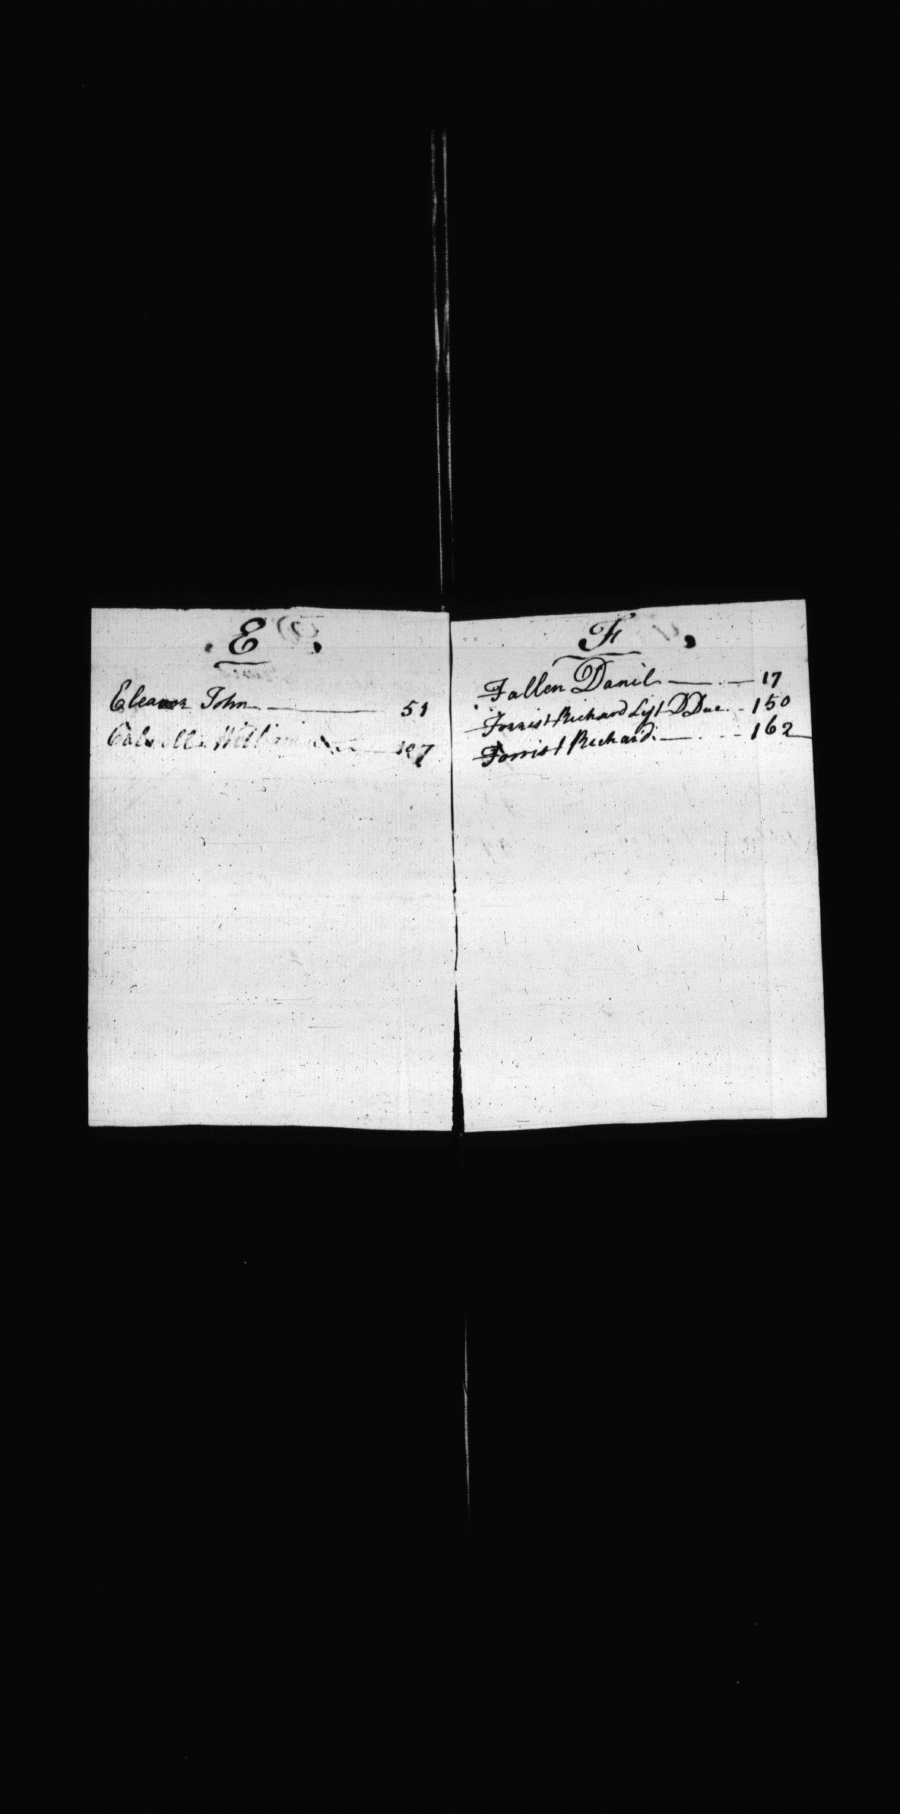 E
Eleanor John 51
William 127
F
Fallen Danil 17
Forrist Richard List D Due 150
Forrist Richard 162